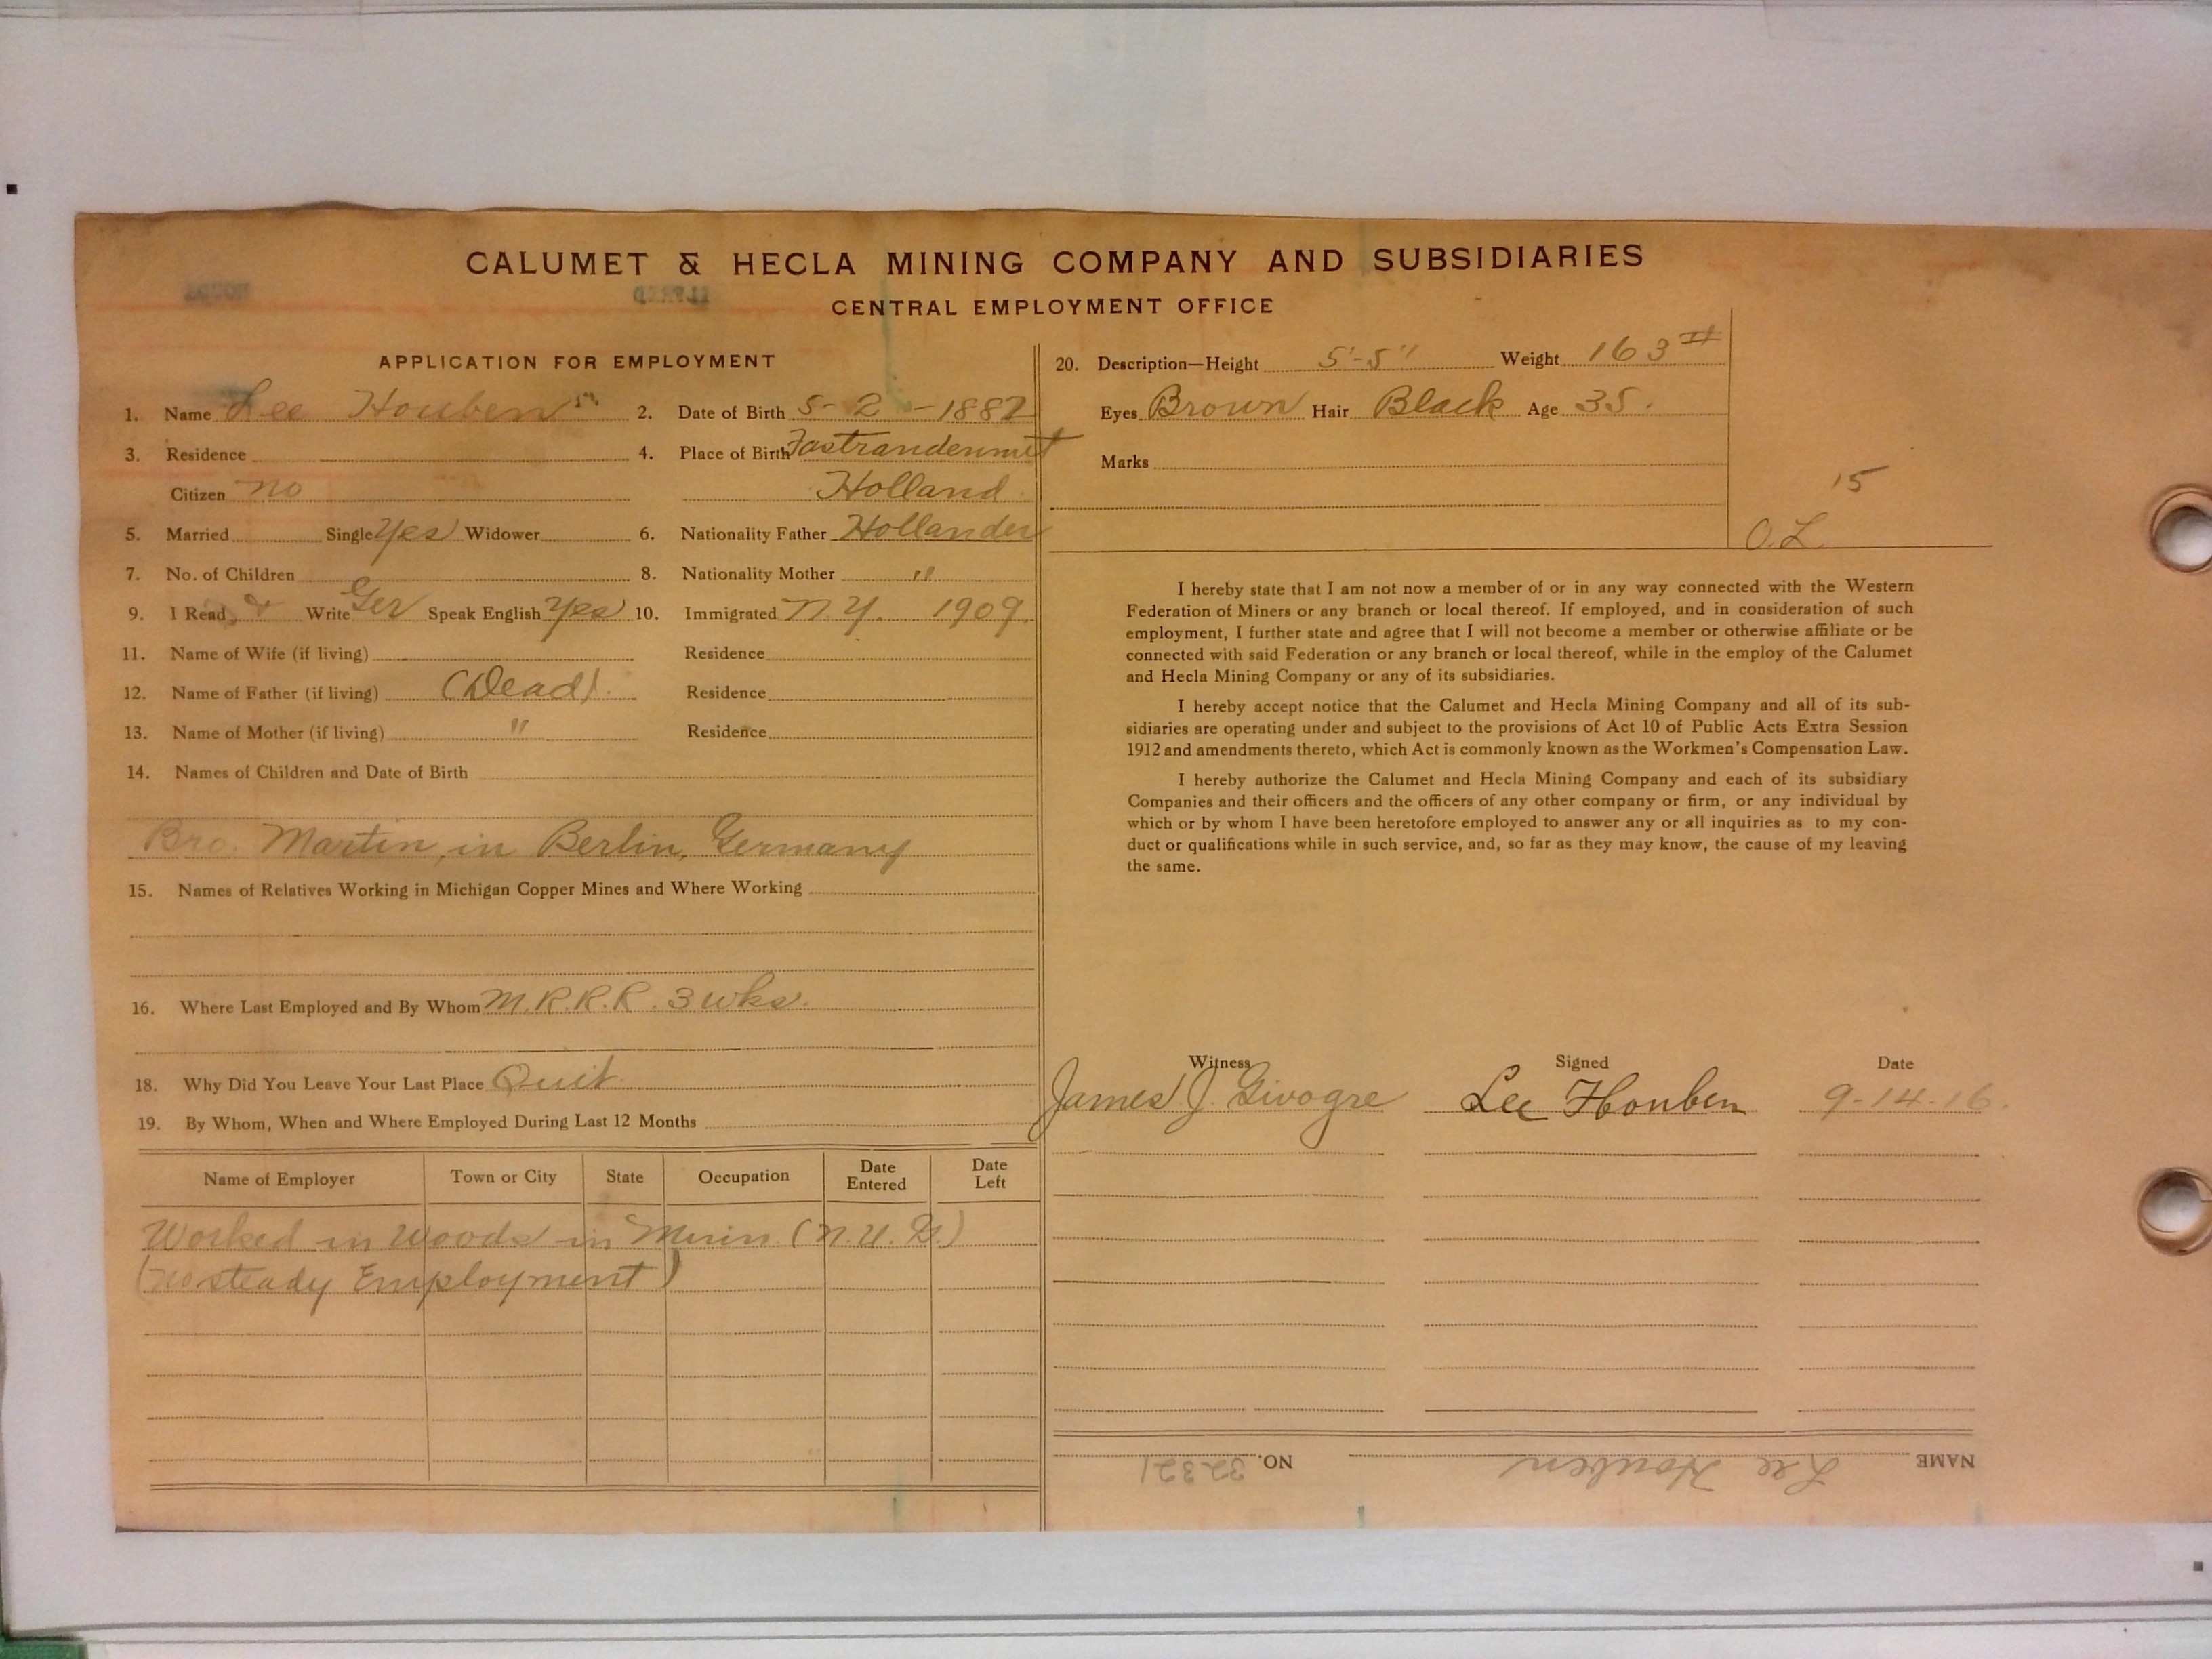 CALUMET & HECLA MINING COMPANY AND SUBSIDIARIES
CENTRAL EMPLOYMENT OFFICE
APPLICATION FOR EMPLOYMENT
1. Name Lee Houben 2. Date of Birth 5-2-1882
3. Residence 4. Place of Birth
Citizen no Holland
5. Married Single Yes Widower 6. Nationality Father Hollander
7. No. of Children 8. Nationality Mother "
9. I Read & Write Ger Speak English Yes 10. Immigrated N.Y. 1909
11. Name of Wife (if living) Residence
12. Name of Father (if living) (Dead) Residence
13. Name of Mother (if living) " Residence
14. Names of Children and Date of Birth
Bro. Martin, in Berlin, Germany
15. Names of Relatives Working in Michigan Copper Mines and Where Working
16. Where Last Employed and By Whom M.R.R.R. 3 wks.
18. Why Did You Leave Your Last Place Quit
19. By Whom, When and Where Employed During Last 12 Months
Name of Employer Town or City State Occupation Date Entered Date Left
Worked in Woods in Minn.
(no steady Employment)
20. Description—Height 5'-5" Weight 163 #
Eyes Brown Hair Black Age 35.
Marks
15
O.L.
I hereby state that I am not now a member of or in any way connected with the Western
Federation of Miners or any branch or local thereof. If employed, and in consideration of such
employment, I further state and agree that I will not become a member or otherwise affiliate or be
connected with said Federation or any branch or local thereof, while in the employ of the Calumet
and Hecla Mining Company or any of its subsidiaries.
I hereby accept notice that the Calumet and Hecla Mining Company and all of its sub-
sidiaries are operating under and subject to the provisions of Act 10 of Public Acts Extra Session
1912 and amendments thereto, which Act is commonly known as the Workmen's Compensation Law.
I hereby authorize the Calumet and Hecla Mining Company and each of its subsidiary
Companies and their officers and the officers of any other company or firm, or any individual by
which or by whom I have been heretofore employed to answer any or all inquiries as to my con-
duct or qualifications while in such service, and, so far as they may know, the cause of my leaving
the same.
Witness Signed Date
James J. Givogre Lee Houben 9-14-16.
NAME Lee Houben NO. 32321